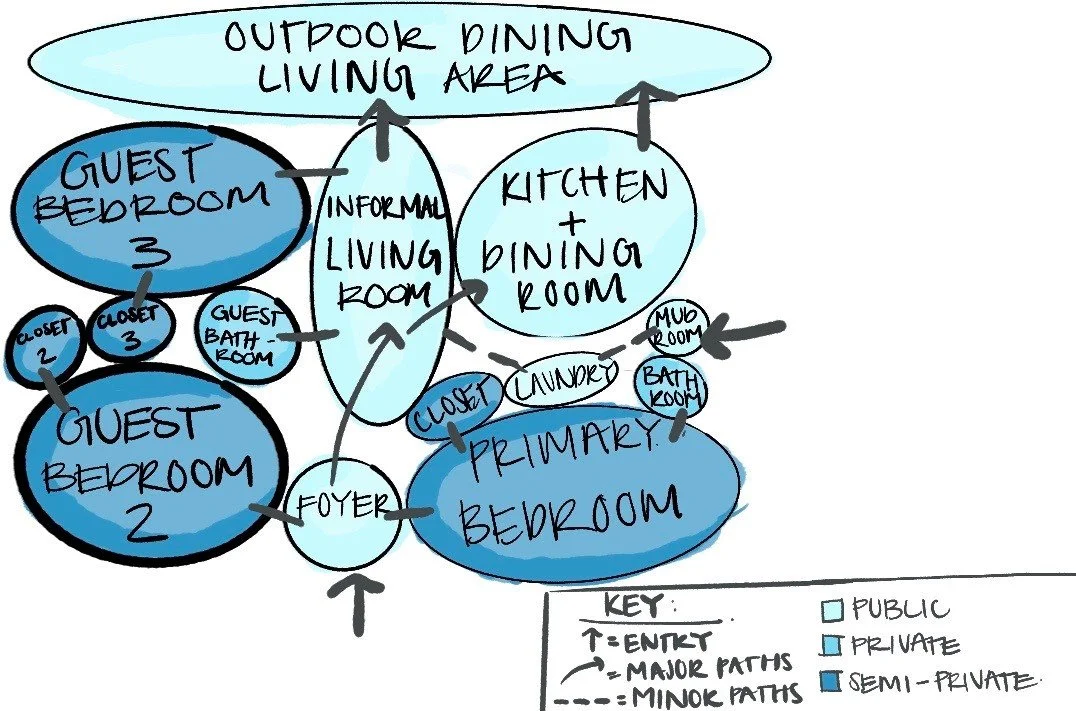 OUTDOOR DINING
LIVING AREA
GUEST
BEDROOM
3
INFORMAL
LIVING
ROOM
KITCHEN
+
DINING
ROOM
CLOSET
2
CLOSET
3
GUEST
BATH-
ROOM
MUD
ROOM
LAUNDRY
BATH
ROOM
CLOSET
GUEST
BEDROOM
2
FOYER
PRIMARY
BEDROOM
KEY:
↑ = ENTRY
→ = MAJOR PATHS
---- = MINOR PATHS
PUBLIC
PRIVATE
SEMI-PRIVATE